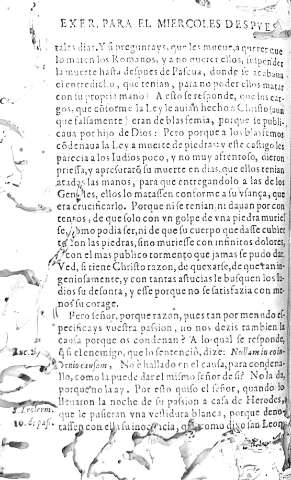 EXER. PARA EL MIERCOLES DESPVES
tales dias. Y si preguntays, que les mueue, a querer que
lo maten los Romanos, y a no querer ellos, suspender
la muerte hasta despues de Pascua, donde se acabaua
el entredicho, que tenian, para no poder ellos matar
con sus propias manos? A esto se responde, que los car
gos, que cõforme la Ley le auian hecho a Christo (aun
que falsamente) eran de blasfemia, porque se publi
caua por hijo de Dios: Pero porque a los blasfemos
cõdenaua la Ley a muerte de piedras: y este castigo les
parecia a los Iudios poco, y no muy afrentoso, dieron
priessa, y apresuraron su muerte en dias, que ellos tenian
atadas las manos, para que entregandolo a las de los
Gentiles, ellos lo matassen conforme a su vsança, que
era crucificarlo. Porque ni se tenian, ni dauan por con
tentos, de que solo con vn golpe de vna piedra muries
se, como podia ser, ni de que su cuerpo quedasse cubier
to con las piedras, sino muriesse con infinitos dolores,
con el mas publico tormento que jamas se pudo dar.
Ved, si tiene Christo razon, de quexarse, de que tan in
geniosamente, y con tantas astucias le busquen los Iu
dios su desonra, y esse porque no se satisfazia con me
nos su corage.
Pero señor, porque razon, pues tan por menudo es
pecificays vuestra passion, no nos dezis tambien la
causa porque os condenan? A lo qual se responde,
Luc. 23. que el enemigo, que lo sentenciò, dize: Nullam in eo in
uenio causam, No è hallado en el causa, para condena
llo, como la puede dar el mismo señor de si? No la da,
porque no la ay. Por esto quiso el señor, quando lo
lleuaron la noche de su passion a casa de Herodes,
que le pusieran vna vestidura blanca, porque deno
tassen con ella su inocencia, que como dixo san Leon